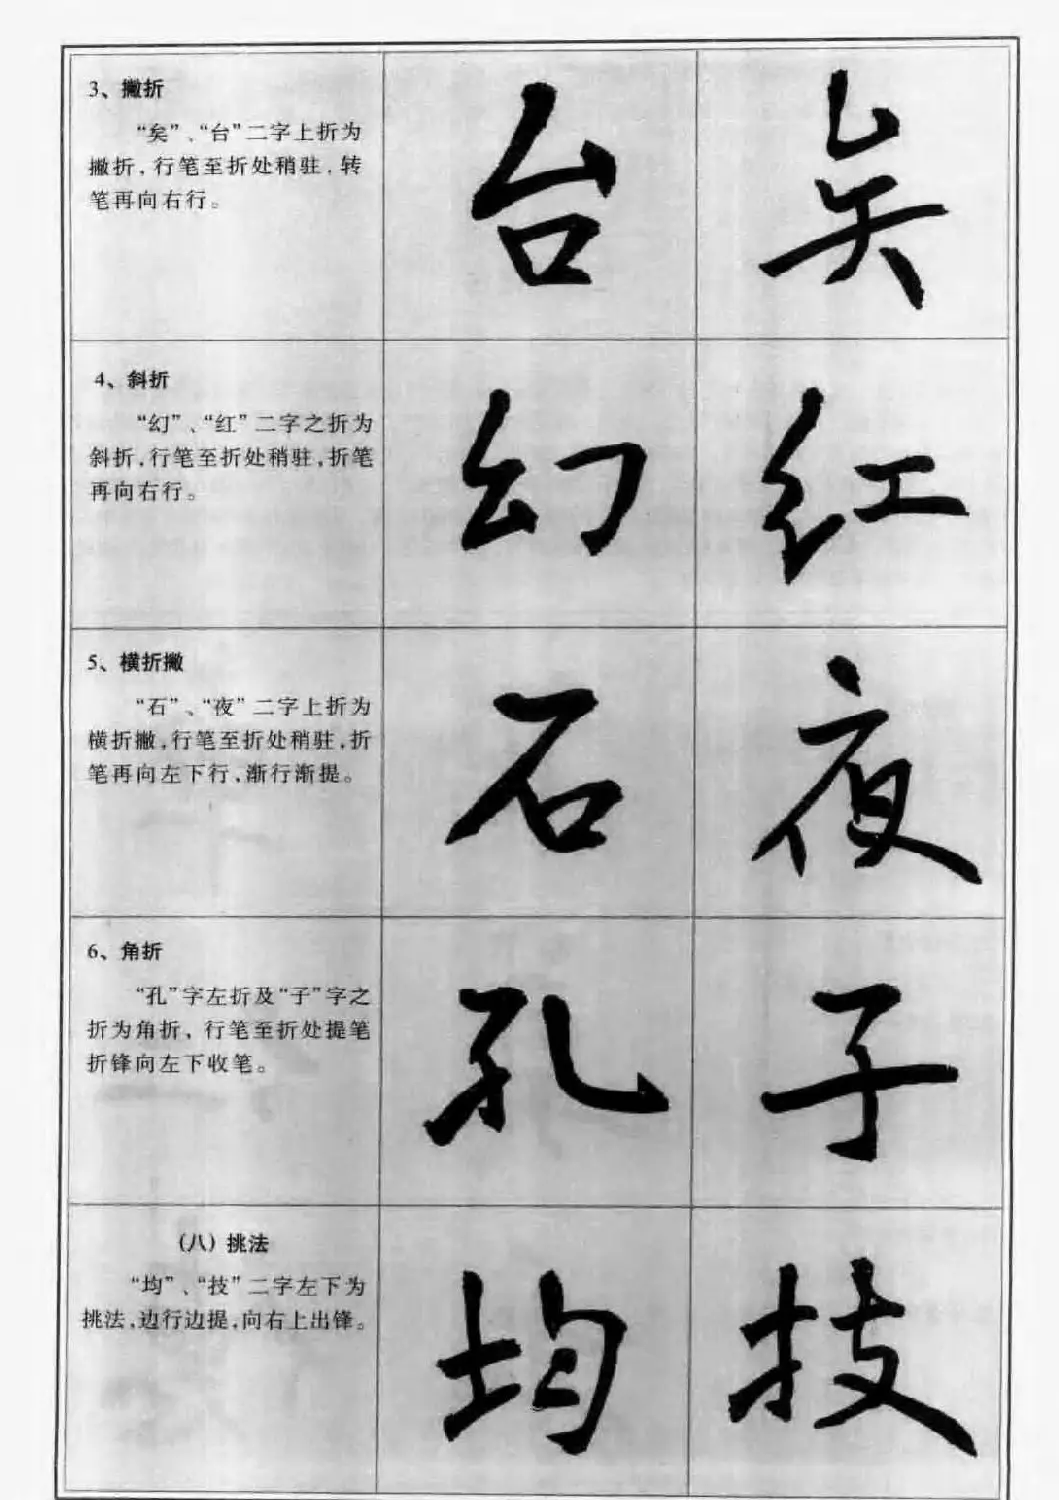 3、撇折
“矣”、“台”二字上折为
撇折，行笔至折处稍驻，转
笔再向右行。
台 矣
4、斜折
“幻”、“红”二字之折为
斜折，行笔至折处稍驻，折笔
再向右行。
幻 红
5、横折撇
“石”、“夜”二字上折为
横折撇，行笔至折处稍驻，折
笔再向左下行，渐行渐提。
石 夜
6、角折
“孔”字左折及“子”字之
折为角折，行笔至折处提笔
折锋向左下收笔。
孔 子
（八）挑法
“均”、“技”二字左下为
挑法，边行边提，向右上出锋。
均 技